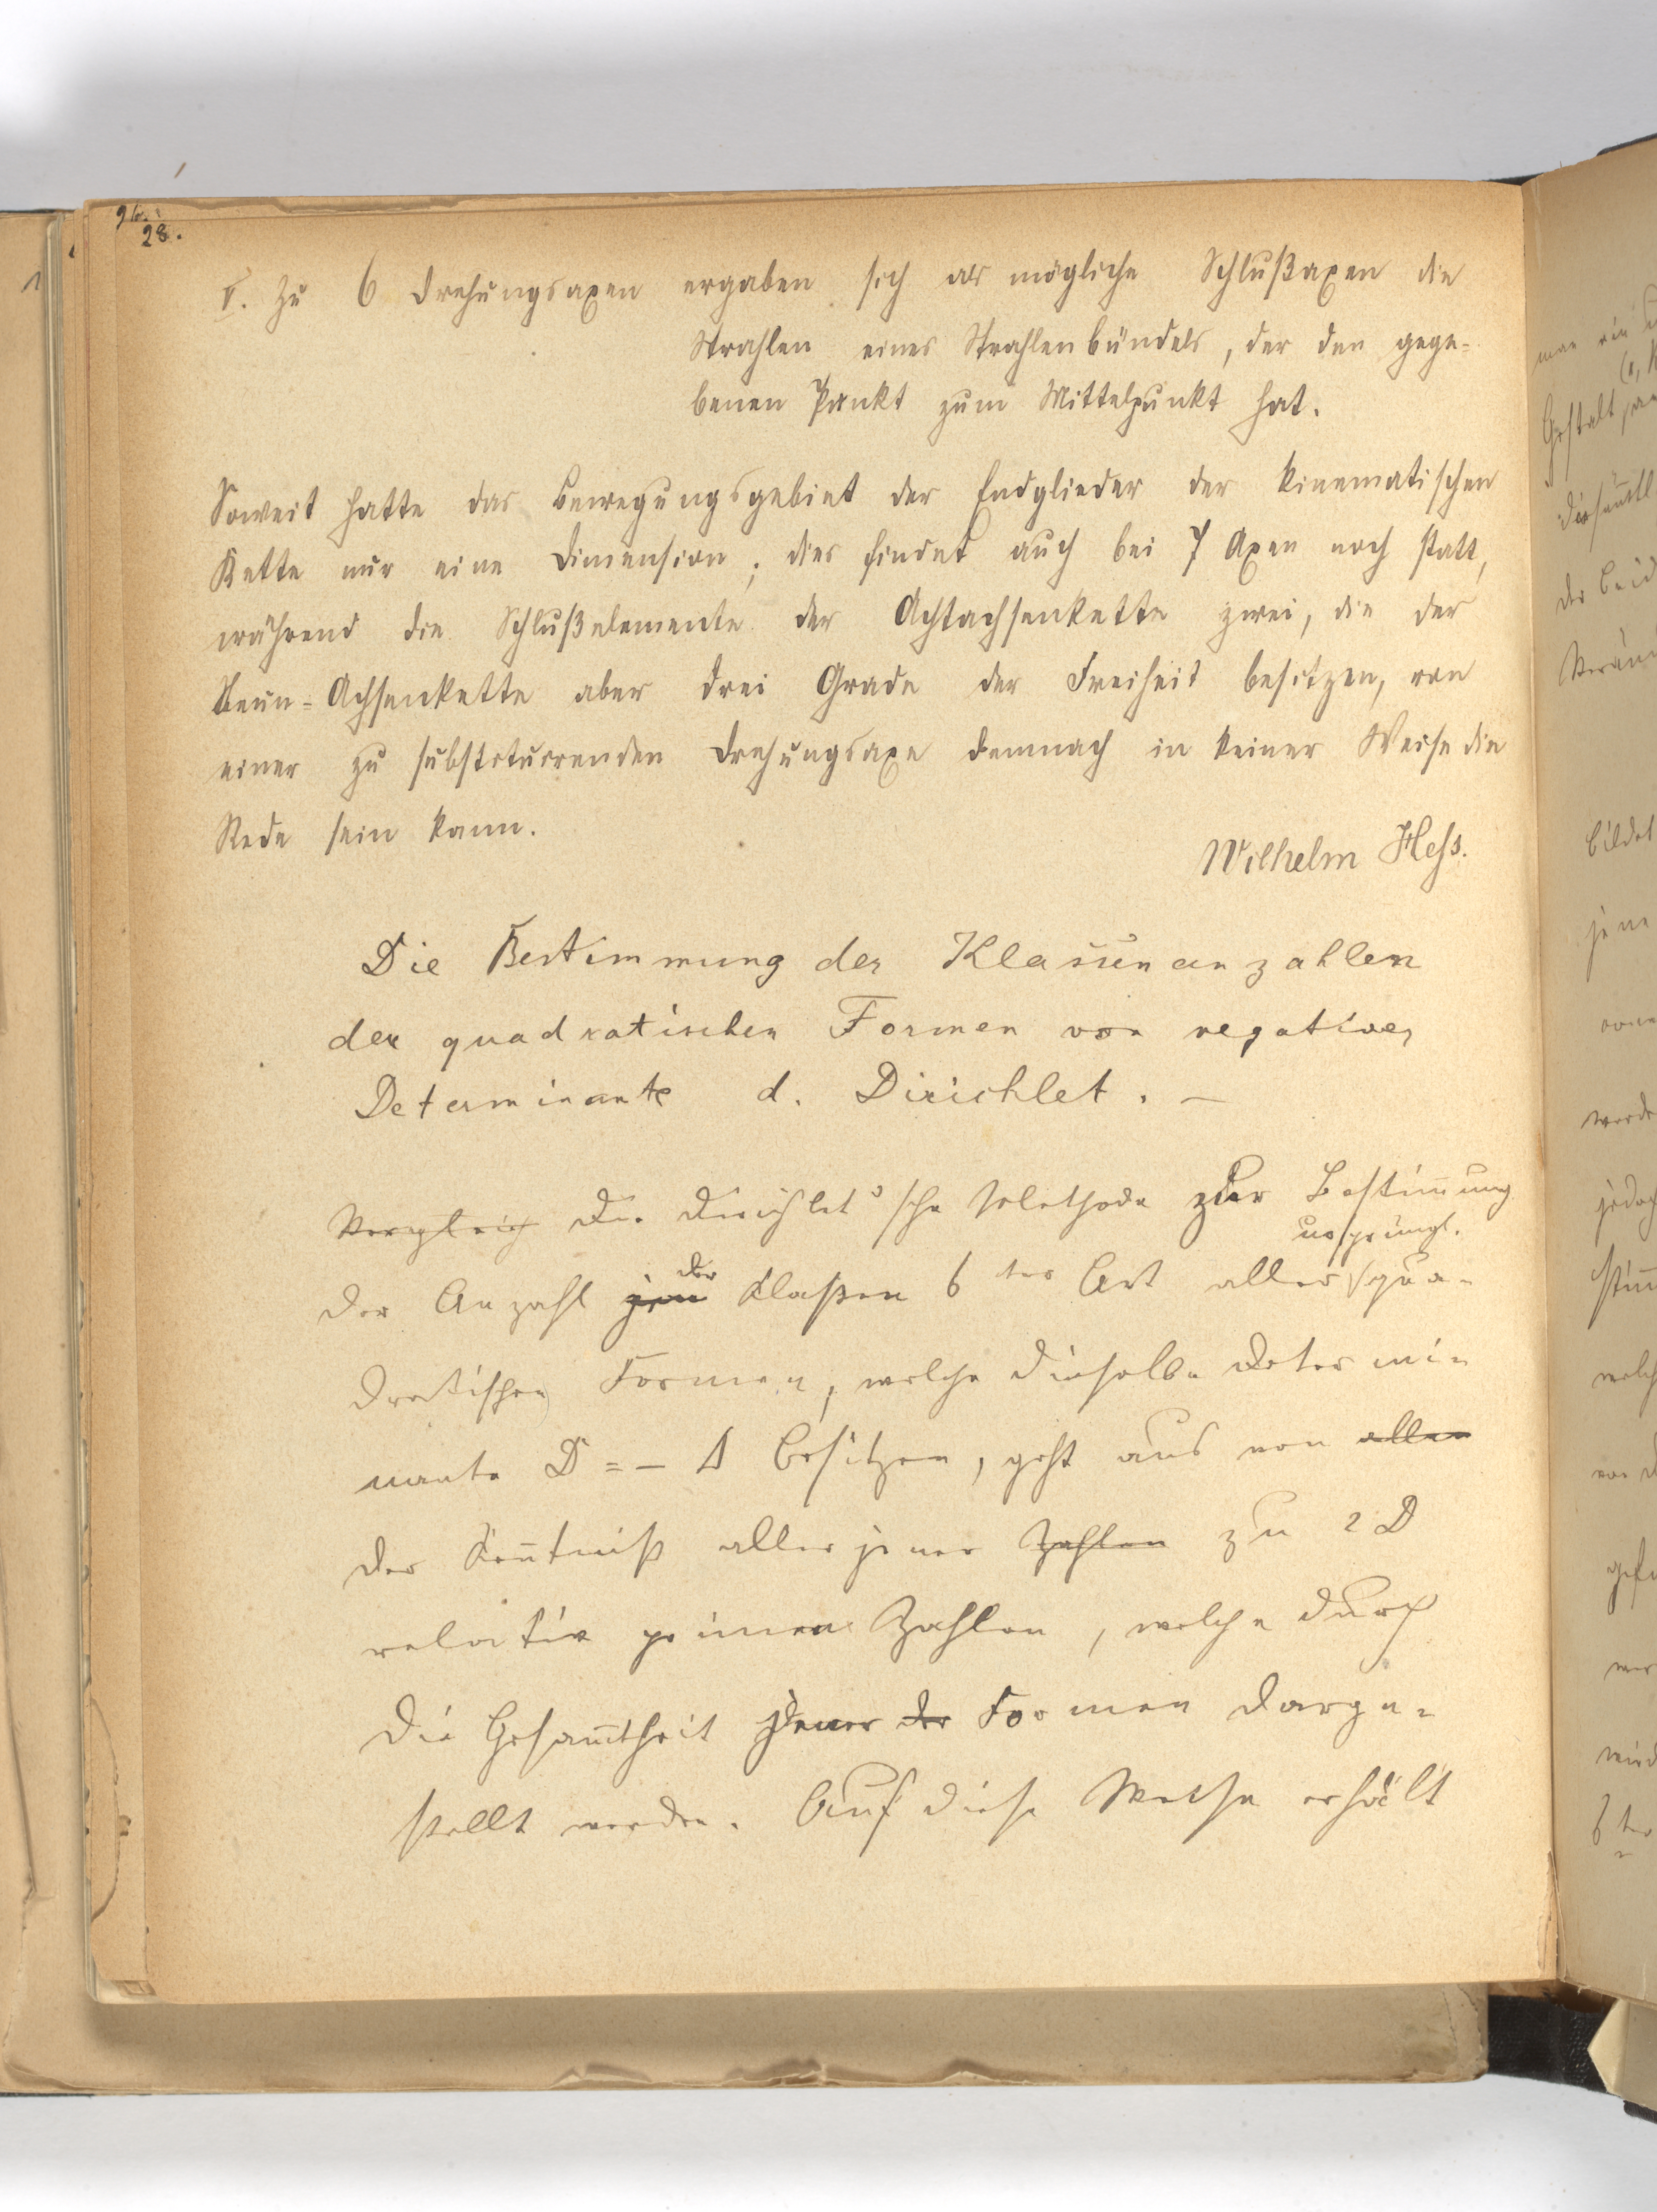 28.
V. Zu 6 Drehungsaxen ergaben sich als mögliche Schlußaxen die
Strahlen eines Strahlenbündels, der den gege-
benen Punkt zum Mittelpunkt hat.
Soweit hatte das Bewegungsgebiet der Endglieder der kinematischen
Kette nur eine Dimension; dies findet auch bei 7 Axen noch statt,
während die Schlußelemente der Achtachsenkette zwei, die der
Neun-Achsenkette aber drei Grade der Freiheit besitzen, von
einer zu substituirenden Drehungsaxe demnach in keiner Weise die
Rede sein kann.
Wilhelm Hess.
Die Bestimmung der Klassenanzahlen
der quadratischen Formen von negativer
Determinante d. Dirichlet. —
Vergleich Die Dirichlet'sche Methode zur Bestimmung
ursprüngl.
der Anzahl der Klaßen 6 ter Art aller qua-
dratischen Formen, welche dieselbe Determi-
nante D = - Δ besitzen, geht aus von allen
der Kenntniß aller jener Zahlen zu 2D
relativ primen Zahlen, welche durch
die Gesammtheit jener der Formen darge-
stellt werden. Auf diese Weise erhält